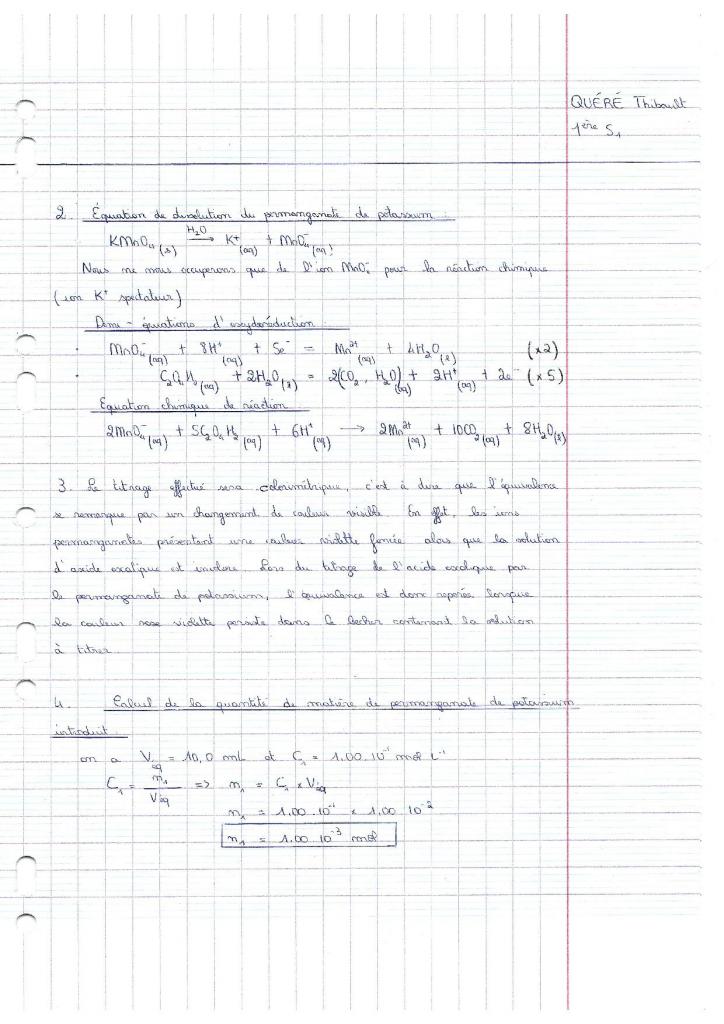 QUÉRÉ Thibault
1ère S1
2. Équation de dissolution du permanganate de potassium :
KMnO4 (s) H2O → K+ (aq) + MnO4- (aq)
Nous ne nous occuperons que de l'ion MnO4- pour la réaction chimique
(ion K+ spectateur)
Demi-équations d'oxydoréduction :
• MnO4- (aq) + 8H+ (aq) + 5e- = Mn2+ (aq) + 4H2O (l) (×2)
• C2O4H2 (aq) + 2H2O (l) = 2(CO2, H2O) (aq) + 2H+ (aq) + 2e- (×5)
Equation chimique de réaction
2MnO4- (aq) + 5C2O4H2 (aq) + 6H+ (aq) → 2Mn2+ (aq) + 10CO2 (aq) + 8H2O (l)
3. Le titrage effectué sera colorimétrique, c'est à dire que l'équivalence
se remarque par un changement de couleur visible. En effet, les ions
permanganates présentent une couleur violette foncée alors que la solution
d'acide oxalique est incolore. Lors du titrage de l'acide oxalique par
le permanganate de potassium, l'équivalence est donc repérée lorsque
la couleur rose violette persiste dans le becher contenant la solution
à titrer.
4. Calcul de la quantité de matière de permanganate de potassium
introduit
on a Véq = 10,0 mL et C1 = 1,00.10-1 mol L-1
C1 = n1 / Véq => n1 = C1 × Véq
n1 = 1,00.10-1 × 1,00 10-2
n1 = 1,00.10-3 mol